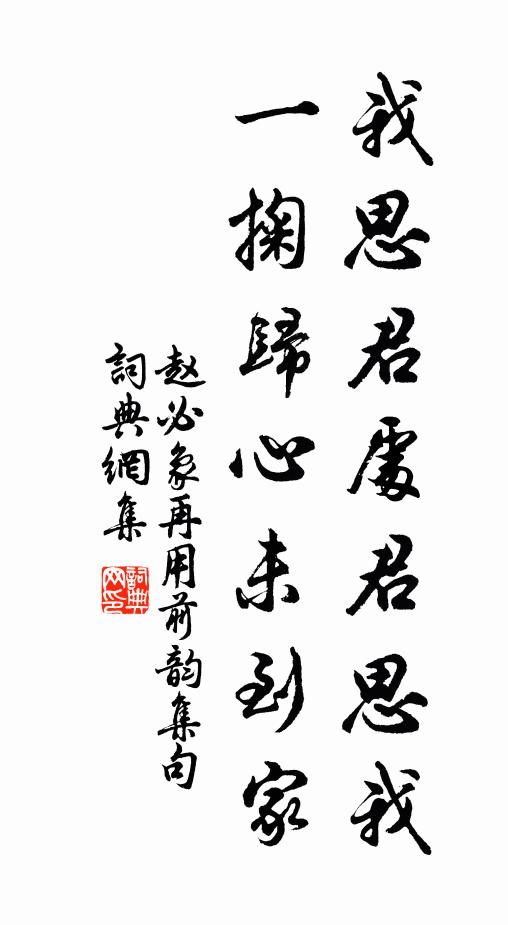 我思君處君思我
一掬歸心未到家
赵必象再用前韵集句
詞典網集
詞典網印